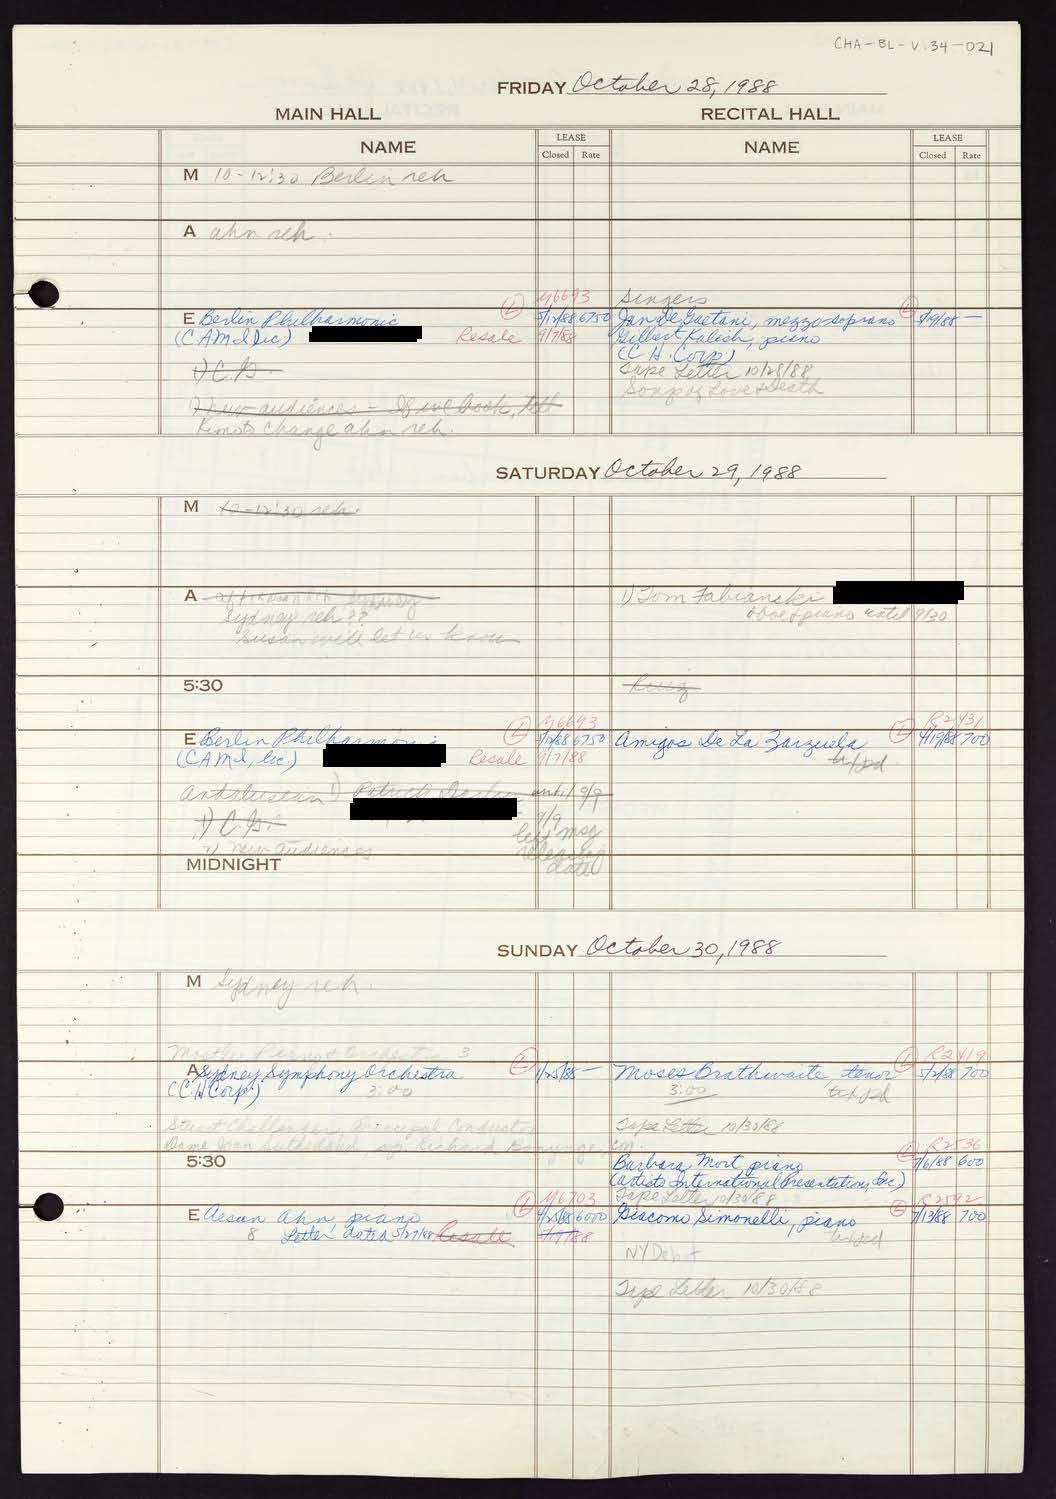 CHA-BL-V.34-021
FRIDAY October 28, 1988
MAIN HALL RECITAL HALL
NAME LEASE Closed Rate NAME LEASE Closed Rate
M 10-12:30 Berlin reh
A ahn reh.
M6693 Singers
E Berlin Philharmonic L 5/12/88 6750 Jan De Gaetani, mezzo-soprano L 8/9/88 —
(CAMI, lic) Resale 9/7/88 Gilbert Kalish, piano
(C.H. Corp)
1) C.G. Tape Letter 10/28/88
Songs of Love & Death
1) New audiences - If we book, tell
Kimoto change ahn reh.
SATURDAY October 29, 1988
M 10-12:30 reh.
A afternoon reh Sydney 1) Tom Fabianski
Sydney reh?? oboe & piano until 9/30
Susan will let us know
5:30 Ruiz
M6693 R2431
E Berlin Philharmonic L 5/12/88 6750 Amigos De La Zarzuela L 4/19/88 700
(CAMI, lic.) Resale 9/7/88 txpd
Andalusian 1) Patrick until 9/9
1) C.G. 9/9
left msg
2) New audiences releasing
MIDNIGHT date
SUNDAY October 30, 1988
M Sydney reh.
Mostly Piano & Orchestra 3 R2419
A Sydney Symphony Orchestra L 1/25/88 — Moses Brathwaite, tenor L 5/2/88 700
(C.H. Corp) 3:00 3:00 txpd
Stuart Challender, Principal Conductor Tape Letter 10/30/88
Dame Joan Sutherland, sop, Richard Bonynge, con.
R2536
5:30 Barbara Mort, piano L 7/6/88 600
(Artists International Presentations, Inc)
M6703 Tape Letter 10/30/88 R2592
E Aesun Ahn, piano L 4/25/88 6000 Giacomo Simonelli, piano L 7/13/88 700
8 Letter dated 5/27/88 Resale 9/7/88 txpd
NY Debut
Tape Letter 10/30/88